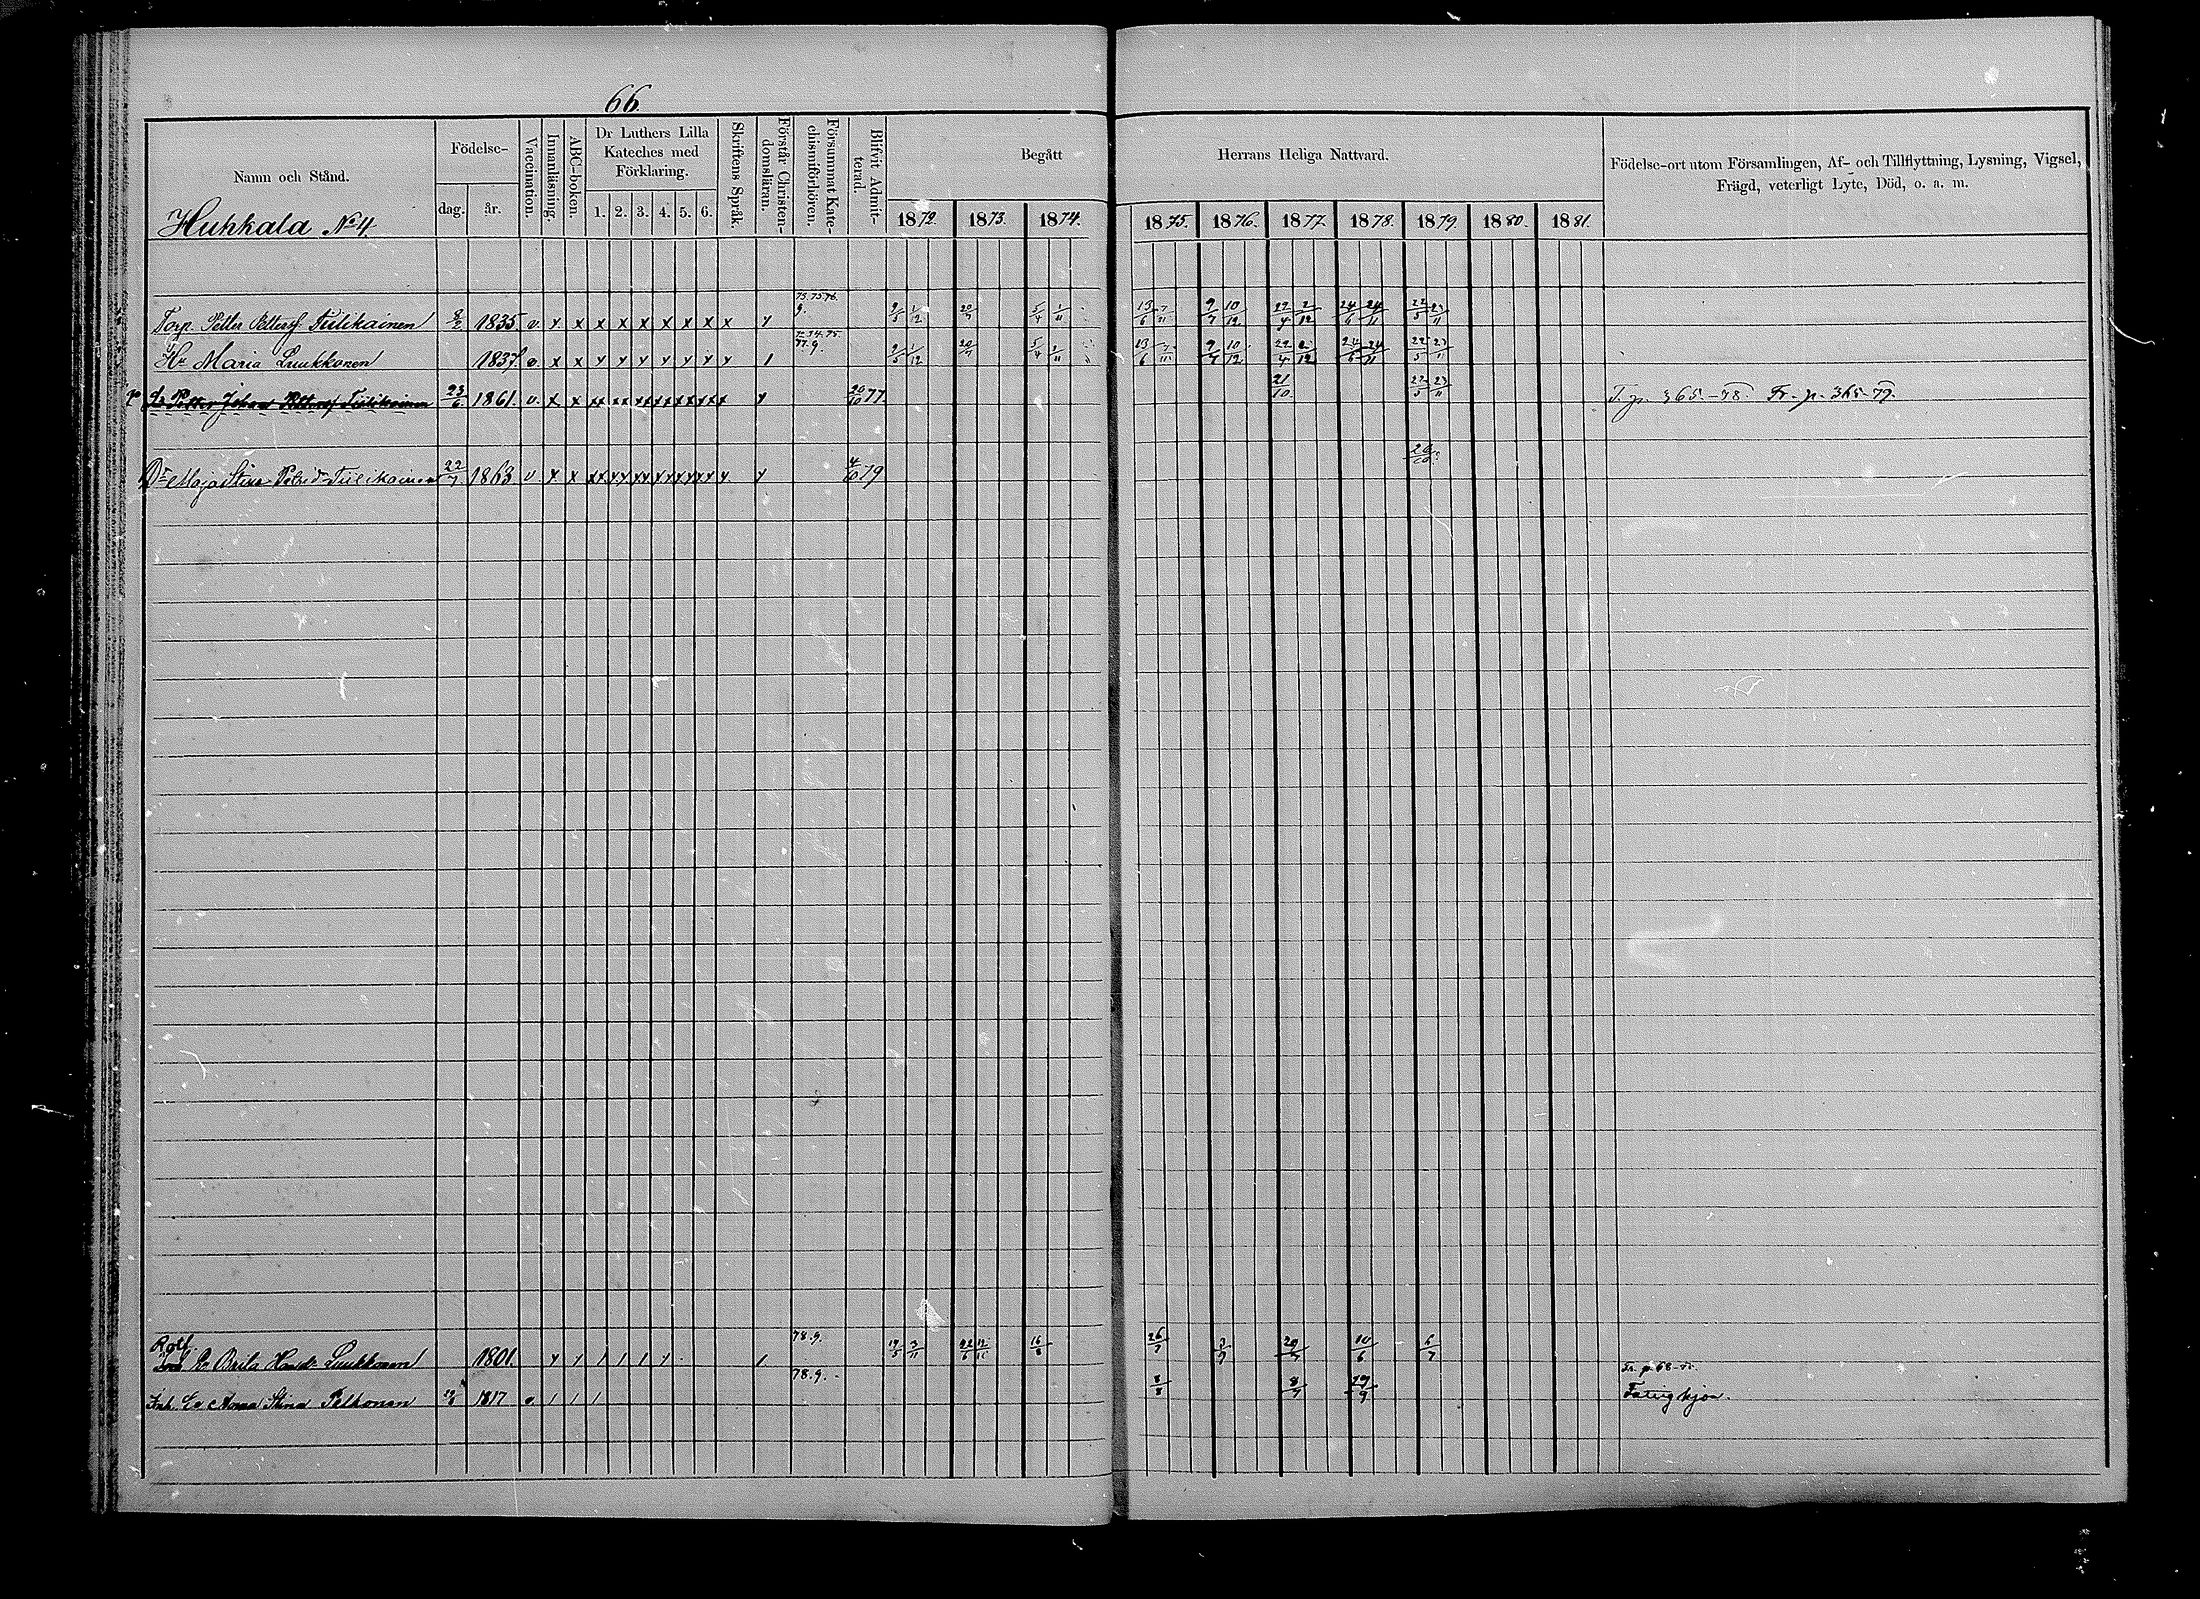 66.
Namn och Stånd. Födelse- dag. år. Vaccination. Innanläsning. ABC-boken. Dr Luthers Lilla Kateches med Förklaring. 1. 2. 3. 4. 5. 6. Skriftens Språk. Förstår Christendomsläran. Försummat Katechismiförhören. Blifvit Admitterad. Begått Herrans Heliga Nattvard. 1872. 1873. 1874. 1875. 1876. 1877. 1878. 1879. 1880. 1881. Födelse-ort utom Församlingen, Af- och Tillflyttning, Lysning, Vigsel, Frägd, veterligt Lyte, Död, o. a. m.
Huhkala No 4
73. 75. 76. 9.
Torp. Petter Pettersf Tiilikainen 8/2 1835 v. x x x x x x x x x y 9/5 1/12 20/7 5/4 1/11 13/6 7/11 9/7 10/12 22/4 2/12 24/6 24/11 22/5 23/11
77. 9.
Hu Maria Luukkonen 1837. v. x x y y y y y y y 1 9/5 1/12 20/7 5/4 1/11 13/6 7/11 9/7 10/12 22/4 2/12 24/6 24/11 22/5 23/11
Sr Petter Johan Pettersf Tiilikainen 23/6 1861. v. x x xx xx xx xx xx xx y 20/10 77. 21/10 22/5 23/11 T. p. 365.-78. Fr. p. 365-79.
Dr Maja Stina Petrid Tiilikainen 22/7 1863 v x x xx yy xy xy xy xy y y 4/10 79 26/10
Roth.
Enk Brita Hansd Luukkonen 1801. y 1 1 1 1 y 1 78. 9. 3/11 22/6 16/8 26/7 3/9 29/7 10/6 6/7
Fr. p. 68-75.
Inh. Anna Stina Pelkonen 1817 v. 1 1 1 78. 9. 8/8 8/7 29/9 Fattighjon.